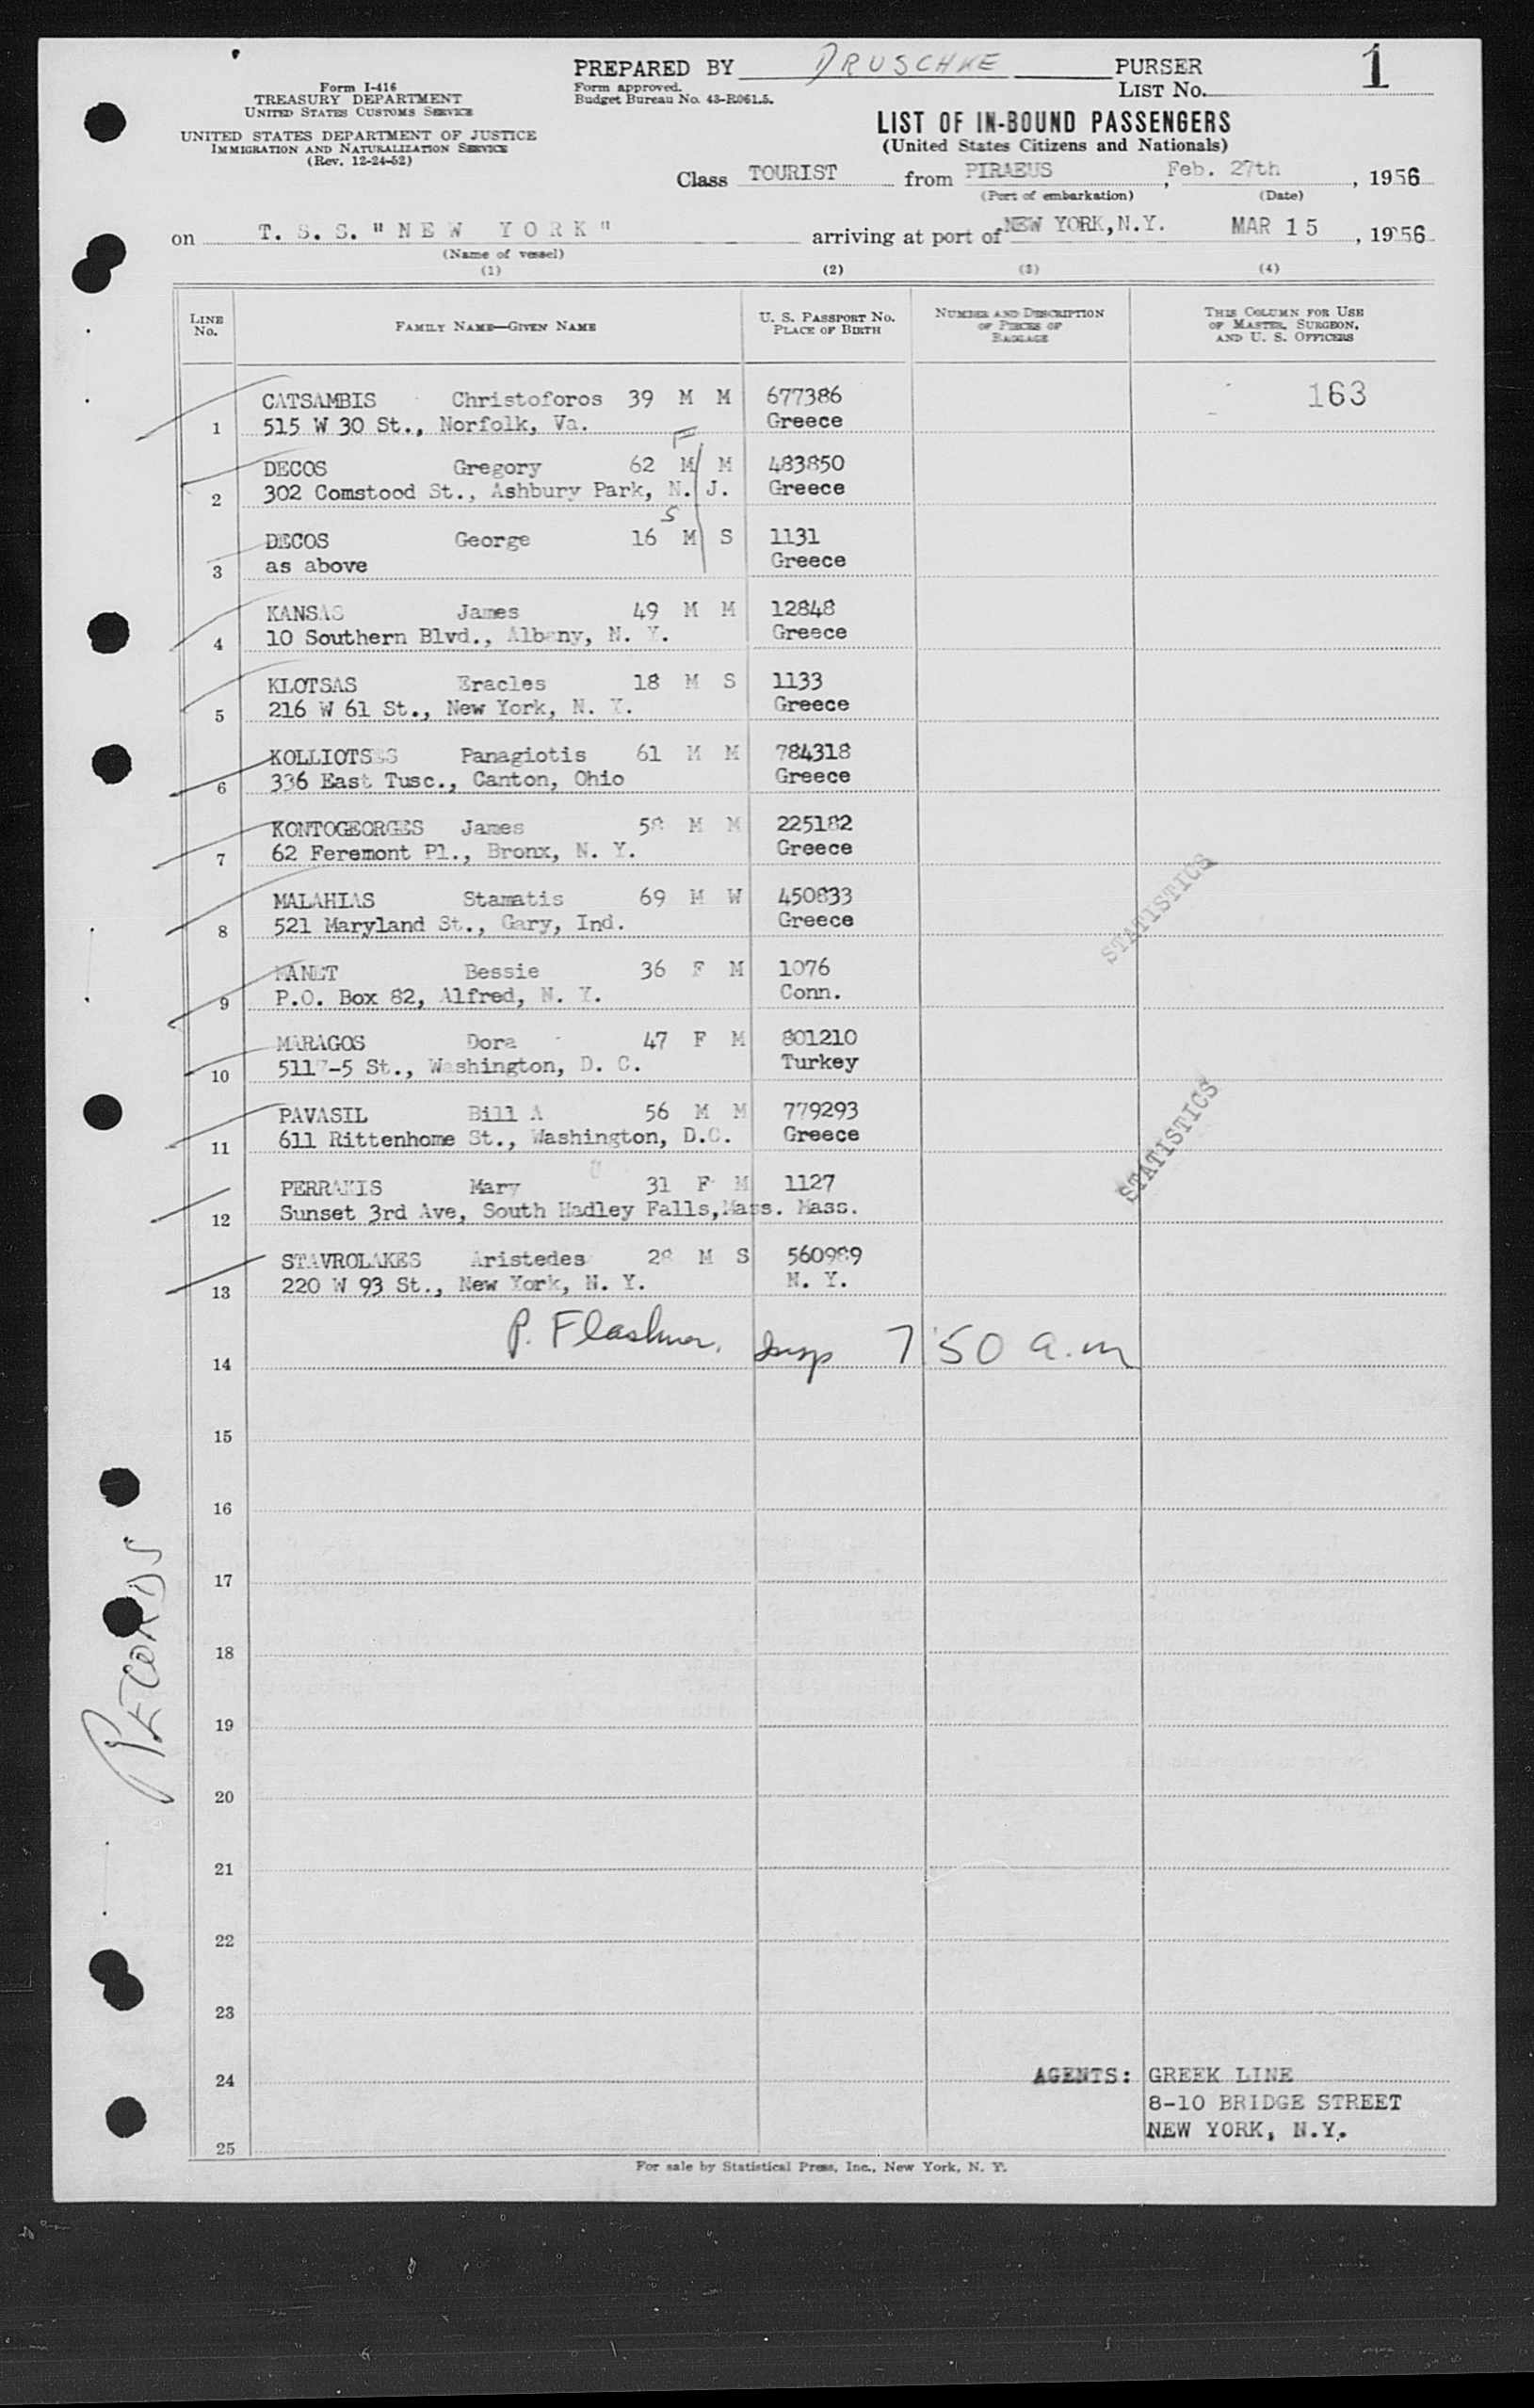 PREPARED BY DRUSCHKE PURSER
Form approved.
Budget Bureau No. 43-R061.5.
LIST No. 1
Form I-416
TREASURY DEPARTMENT
UNITED STATES CUSTOMS SERVICE
UNITED STATES DEPARTMENT OF JUSTICE
IMMIGRATION AND NATURALIZATION SERVICE
(Rev. 12-24-52)
LIST OF IN-BOUND PASSENGERS
(United States Citizens and Nationals)
Class TOURIST from PIRAEUS, Feb. 27th, 1956
(Port of embarkation) (Date)
on T. S. S. "NEW YORK" arriving at port of NEW YORK, N.Y. MAR 15, 1956
(Name of vessel)
(1) (2) (3) (4)
LINE No. FAMILY NAME—GIVEN NAME U. S. PASSPORT No. PLACE OF BIRTH NUMBER AND DESCRIPTION OF PIECES OF BAGGAGE THIS COLUMN FOR USE OF MASTER, SURGEON, AND U. S. OFFICERS
CATSAMBIS Christoforos 39 M M 677386 163
1 515 W 30 St., Norfolk, Va. Greece
F
DECOS Gregory 62 M M 483850
2 302 Comstood St., Ashbury Park, N. J. Greece
5
DECOS George 16 M S 1131
3 as above Greece
KANSAS James 49 M M 12848
4 10 Southern Blvd., Albany, N. Y. Greece
KLOTSAS Eracles 18 M S 1133
5 216 W 61 St., New York, N. Y. Greece
KOLLIOTSES Panagiotis 61 M M 784318
6 336 East Tusc., Canton, Ohio Greece
KONTOGEORGES James 58 M M 225182
7 62 Feremont Pl., Bronx, N. Y. Greece
MALAHIAS Stamatis 69 M W 450833
8 521 Maryland St., Gary, Ind. Greece
STATISTICS
MANET Bessie 36 F M 1076
9 P.O. Box 82, Alfred, N. Y. Conn.
MARAGOS Dora 47 F M 801210
10 5117-5 St., Washington, D. C. Turkey
PAVASIL Bill A 56 M M 779293
11 611 Rittenhome St., Washington, D.C. Greece
STATISTICS
PERRAKIS Mary 31 F M 1127
12 Sunset 3rd Ave, South Hadley Falls, Mass. Mass.
STAVROLAKES Aristedes 28 M S 560989
13 220 W 93 St., New York, N. Y. N. Y.
P. Flashner, Insp 7 50 a.m
14
15
16
17
RECORDS
18
19
20
21
22
23
24 AGENTS: GREEK LINE
8-10 BRIDGE STREET
NEW YORK, N.Y.
25
For sale by Statistical Press, Inc., New York, N. Y.